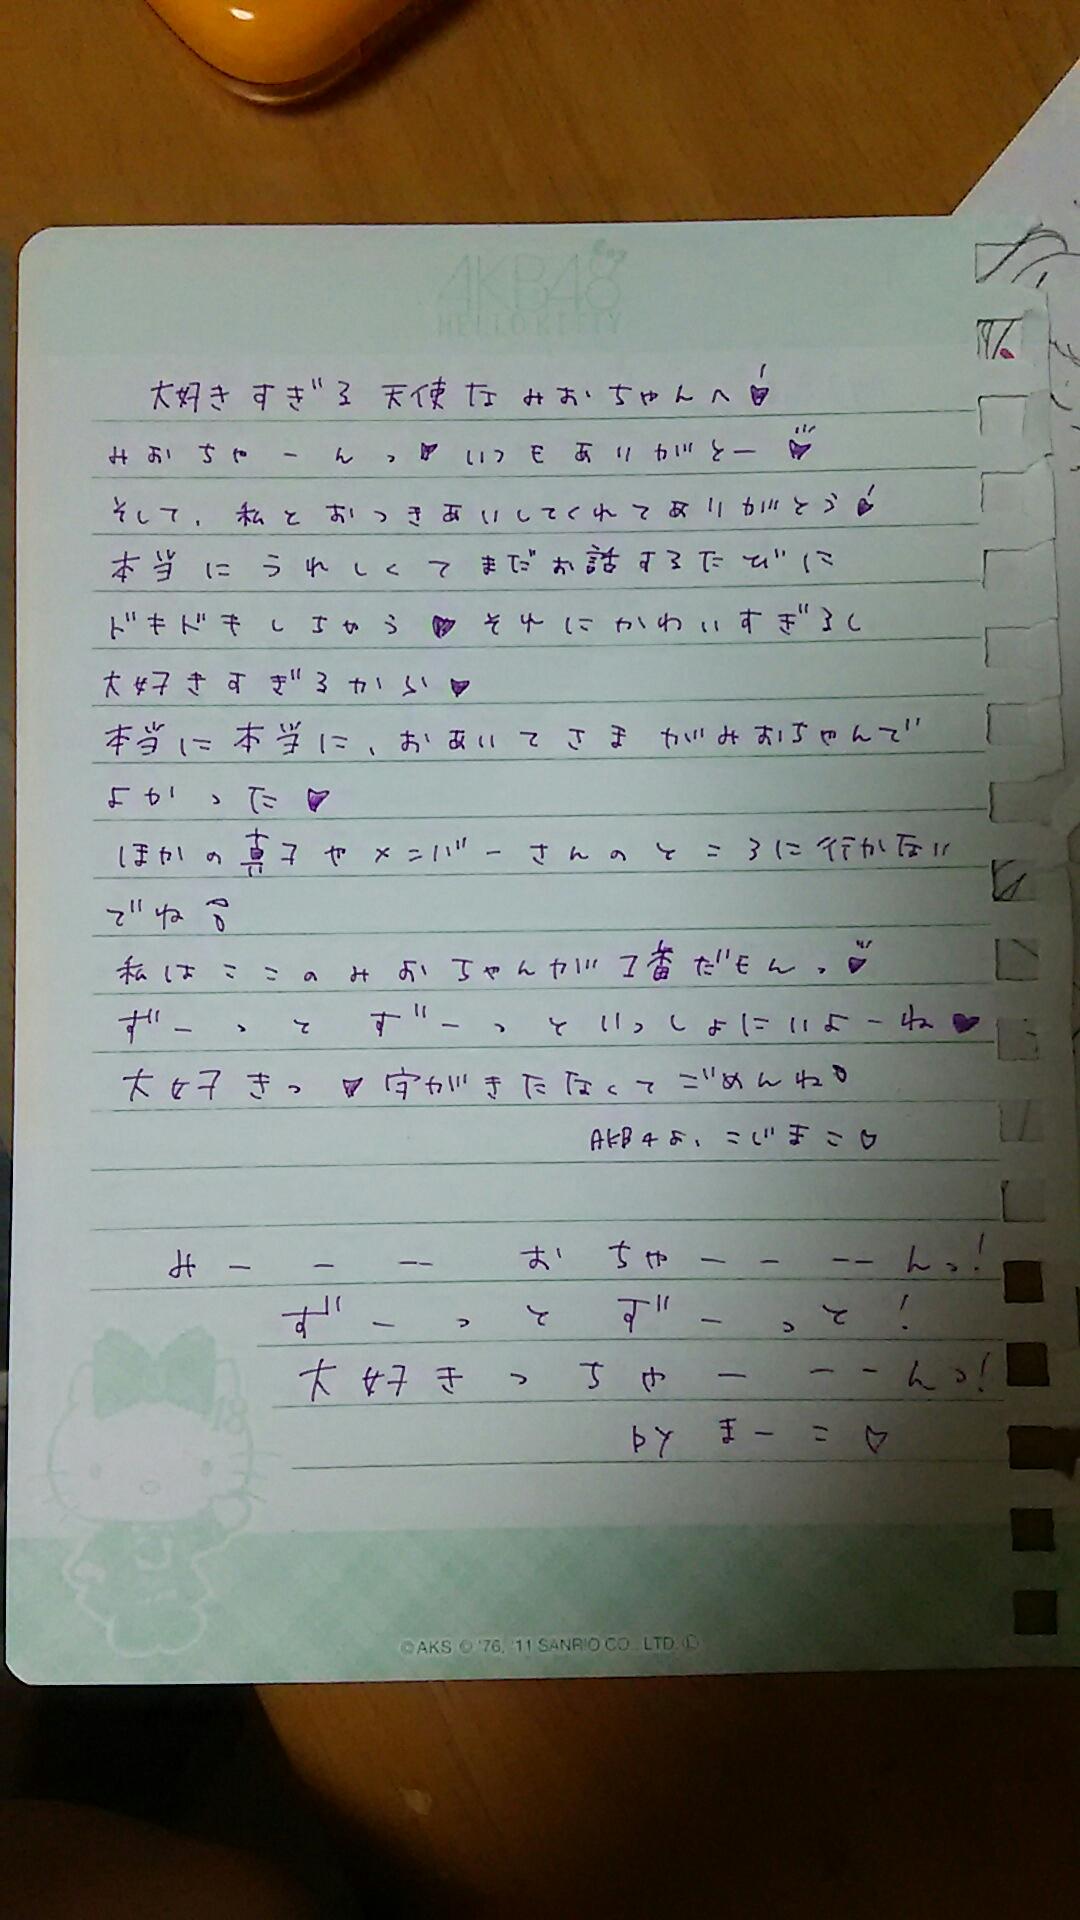 AKB48
HELLO KITTY
大好きすぎる 天使な みおちゃんへ♥
みおちゃーんっ♥ いつもありがとー♥
そして、私とおつきあいしてくれてありがとう♥
本当にうれしくてまだお話するたびに
ドキドキしちゃう♥ それにかわいすぎるし
大好きすぎるから♥
本当に本当に、おあいてさまがみおちゃんで
よかった♥
ほかの真子やメニバーさんのところに行かない
でね
私はここのみおちゃんが1番だもんっ♥
ずーっと ずーっといっしょにいよーね♥
大好きっ♥ 字がきたなくてごめんね
AKB4よ、こじまこ♡
みーーー おちゃーーーんっ!
ずーっと ずーっと!
大好きっちゃーーーんっ!
by まーこ♡
18
©AKS © '76, '11 SANRIO CO., LTD. Ⓛ